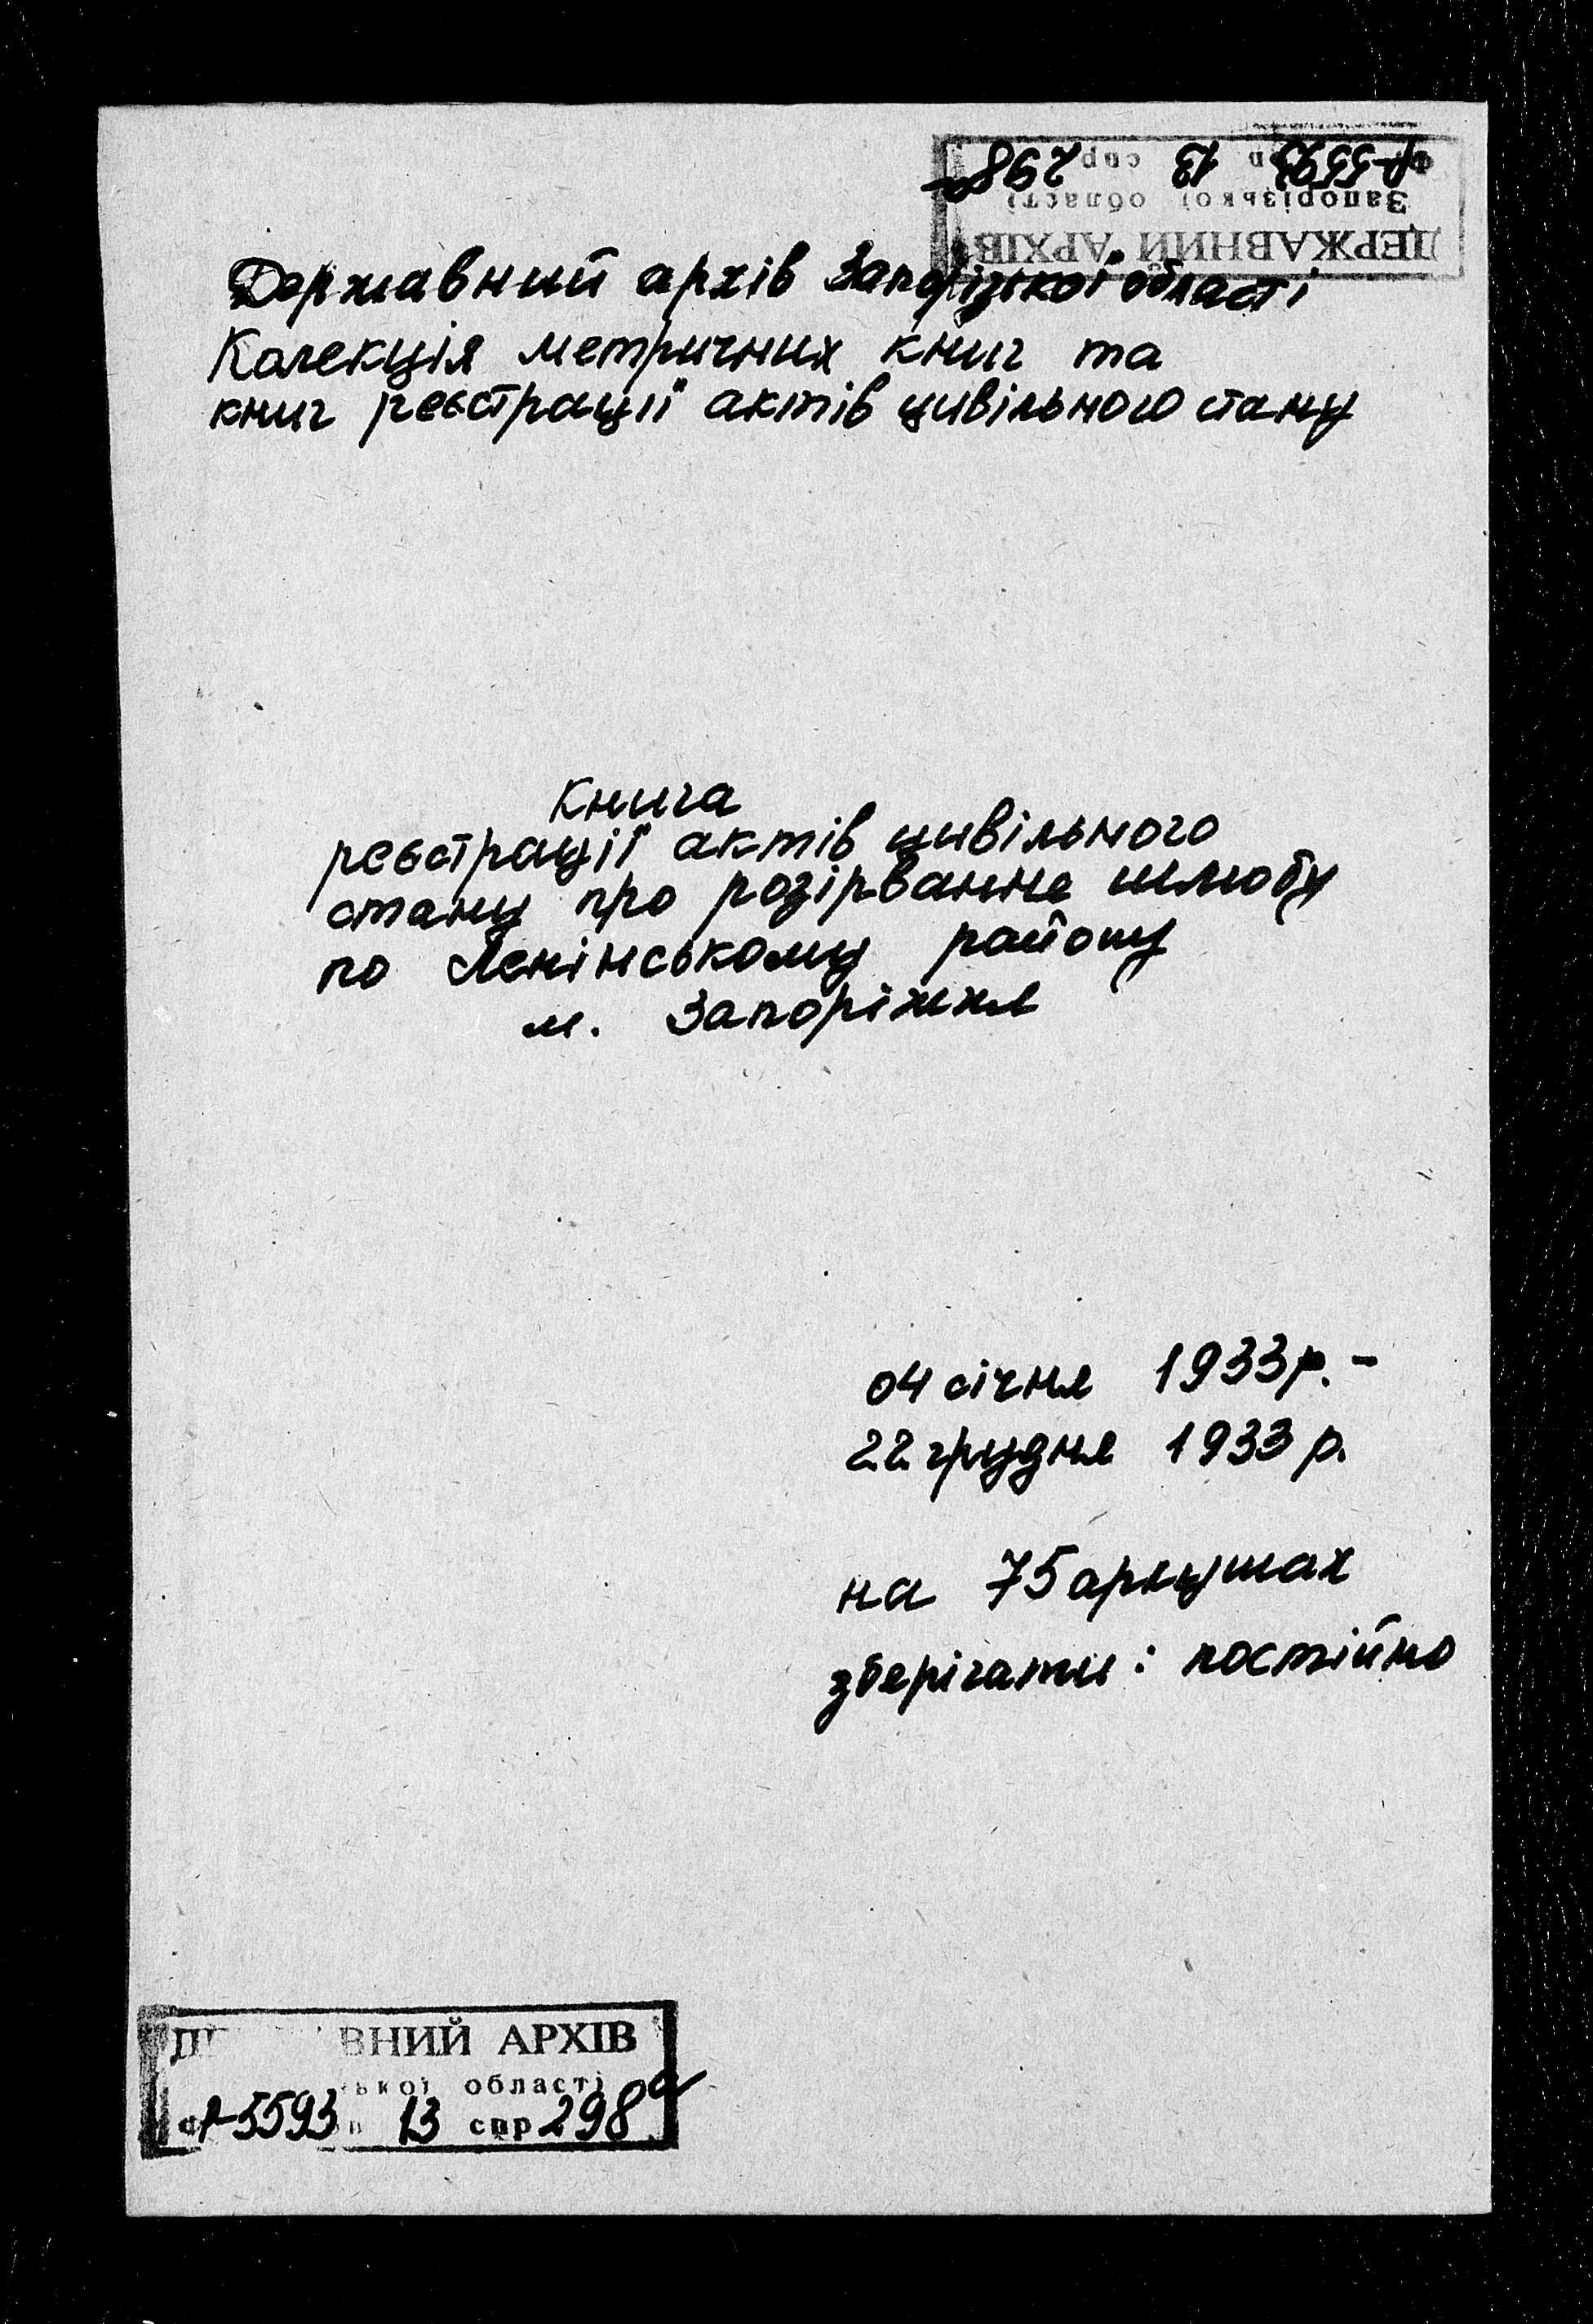 ДЕРЖАВНИЙ АРХІВ
Запорізької області
Ф Р-5593 оп 13 спр 298а
Державний архів Запорізької області
Колекція метричних книг та
книг реєстрації актів цивільного стану
Книга
реєстрації актів цивільного
стану про розірвання шлюбу
по Ленінському району
м. Запоріжжя
04 січня 1933 р. -
22 грудня 1933 р.
на 75 аркушах
зберігати: постійно
ВНИЙ АРХІВ
ької області
Р-5593 оп 13 спр 298а